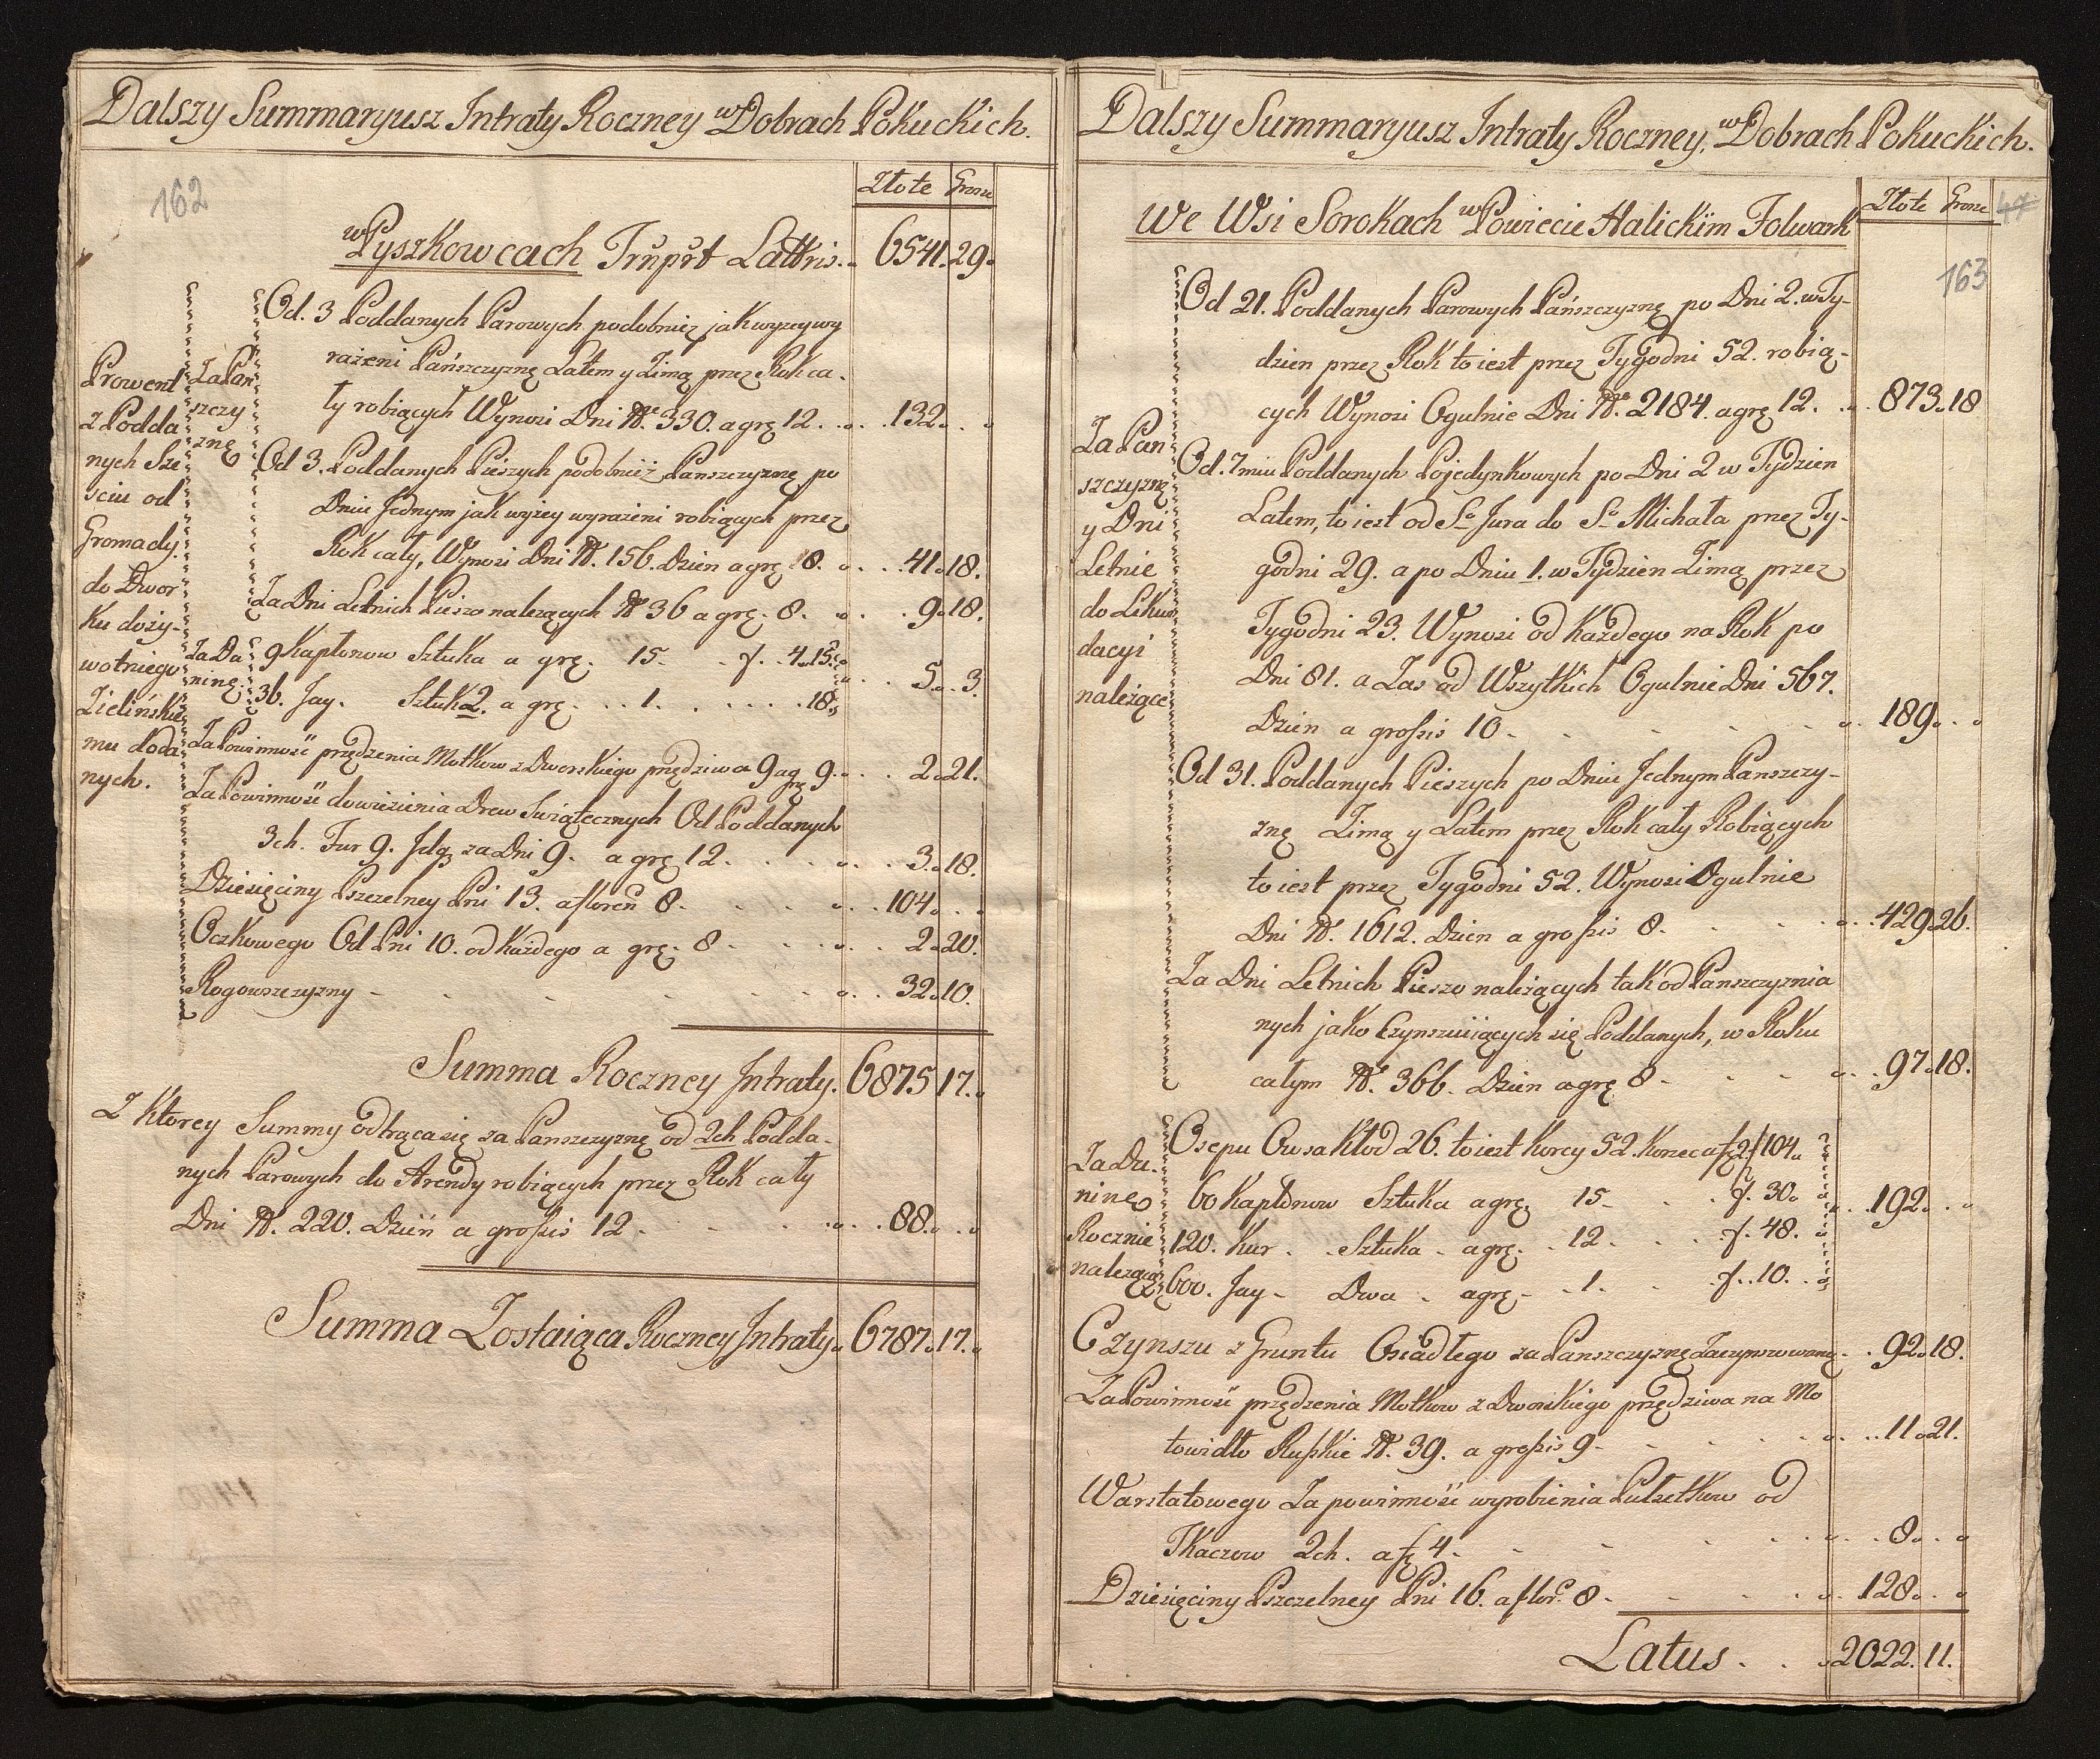 Dalszy Summaryusz Intraty Roczney w Dobrach Pokuckich.
162
Złote Grosze
w Pyszkowcach Trnprt Lattris. 6541. 29.
Prowent
z Podda
nych Sze
sciu od
Gromady
do Dwor
ku doży-
wotniego
Zielińskie
mu doda
nych.
Za Pan
szczy
znę
Od. 3 Poddanych Parowych podobniez jak wyzey wy
rażeni Pańszczyznę Latem y Zimą przez Rok ca-
ły robiących Wynosi Dni No. 330. a grę 12. 132.
Od 3. Poddanych Pieszych podobnież Panszczyznę po
Dniu Jednym jak wyżey wyrażeni robiących przez
Rok cały, Wynosi Dni No. 156. Dzien a grę 8. 41. 18.
Za Dni Letnich Pieszo nalezących No 36 a grę. 8. 9. 18.
Za Da
ninę.
9 Kapłonow Sztuka a grę. 15. f. 4.15.
36. Jay. Sztuk 2. a grę. 1. 18. 5. 3.
Za Powinność przędzenia Motkow z Dworskiego przędziwa 9 a grę 9. 2. 21.
Za Powinność dowiezienia Drew Swiątecznych Od Poddanych
3ch. Fur 9. Idq. za Dni 9. a grę 12. 3. 18.
Dziesięciny Pszczelney Pni 13. a floren 8. 104.
Oczkowego Od Pni 10. od Każdego a grę. 8 2. 20.
Rogowszczyzny 32. 10.
Summa Roczney Intraty. 6875 17.
Z Ktorey Summy odtrąca się za Panszczyznę od 2ch Podda-
nych Parowych do Arendy robiących przez Rok cały
Dni No. 220. Dzień a grossis 12 88.
Summa Zostaiąca Roczney Intraty. 6787. 17.
Dalszy Summaryusz Intraty Roczney, w Dobrach Pokuckich.
Złote Grosze 47
We Wsi Sorokach w Powiecie Halickim Folwark
163
Za Pan
szczyznę
y Dni
Letnie
do Likwi
dacyi
należące
Od 21. Poddanych Parowych Pańszczyznę po Dni 2. w Ty-
dzien przez Rok to iest przez Tygodni 52. robią-
cych Wynosi Ogulnie Dni No. 2184. a grę 12. 873. 18
Od. 7miu Poddanych Pojedynkowych po Dni 2 w Tydzien
Latem, to iest od So Jura do So Michała przez Ty-
godni 29. a po Dniu 1. w Tydzien Zimą przez
Tygodni 23. Wynosi od Każdego na Rok po
Dni 81. a Zas od Wszytkich Ogulnie Dni 567.
Dzien a grossis 10 189.
Od 31. Poddanych Pieszych po Dniu Jednym Panszczy-
znę Zimą y Latem przez Rok cały Robiących
to iest przez Tygodni 52. Wynosi Ogulnie
Dni No. 1612. Dzien a grossis 8. 429. 26.
Za Dni Letnich Pieszo należących tak od Panszczyznia
nych jako Czynszuiących się Poddanych, w Roku
całym No. 366. Dzien a grę 8 97. 18.
Za Da-
ninę
Rocznie
należącą
Osepu Owsa Kłod 26. to iest Korcy 52. Korzec a f 2. f 104.
60 Kapłonow Sztuka a grę. 15 f. 30. 192.
120. Kur Sztuka a grę. 12 f. 48.
600. Jay Dwa a grę. 1. f. 10.
Czynszu z Gruntu Osiadłego za Panszczyznę Zaczynszowaną 92. 18.
Za Powinność przędzenia Motkow z Dworskiego przędziwa na Mo
towidło Ruskie No. 39. a grossis 9 11. 21.
Warstatowego Za powinność wyrobienia Pułsetkow od
Tkaczow 2ch. a f 4 8.
Dziesięciny Pszczelney Pni 16. a flor. 8 128.
Latus 2022. 11.